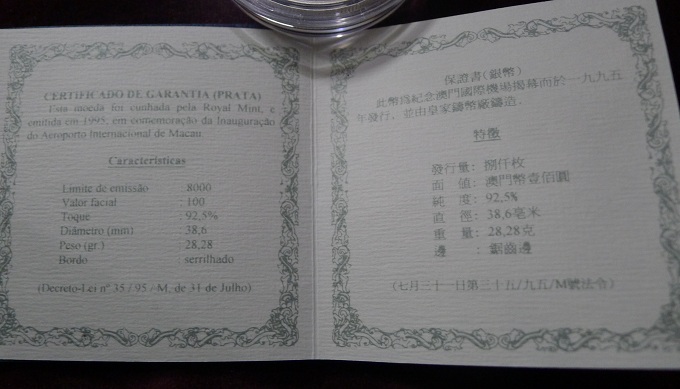 CERTIFICADO DE GARANTIA (PRATA)
Esta moeda foi cunhada pela Royal Mint, e
emitida em 1995, em comemoração da Inauguração
do Aeroporto Internacional de Macau.
Características
Limite de emissão : 8000
Valor facial : 100
Toque : 92,5%
Diâmetro (mm) : 38,6
Peso (gr.) : 28,28
Bordo : serrilhado
(Decreto-Lei nº 35 / 95 / M, de 31 de Julho)
保證書(銀幣)
此幣爲紀念澳門國際機場揭幕而於一九九五
年發行，並由皇家鑄幣廠鑄造.
特徵
發行量: 捌仟枚
面 值: 澳門幣壹佰圓
純 度: 92,5%
直 徑: 38,6毫米
重 量: 28,28克
邊 : 鋸齒邊
(七月三十一日第三十五/九五/M號法令)